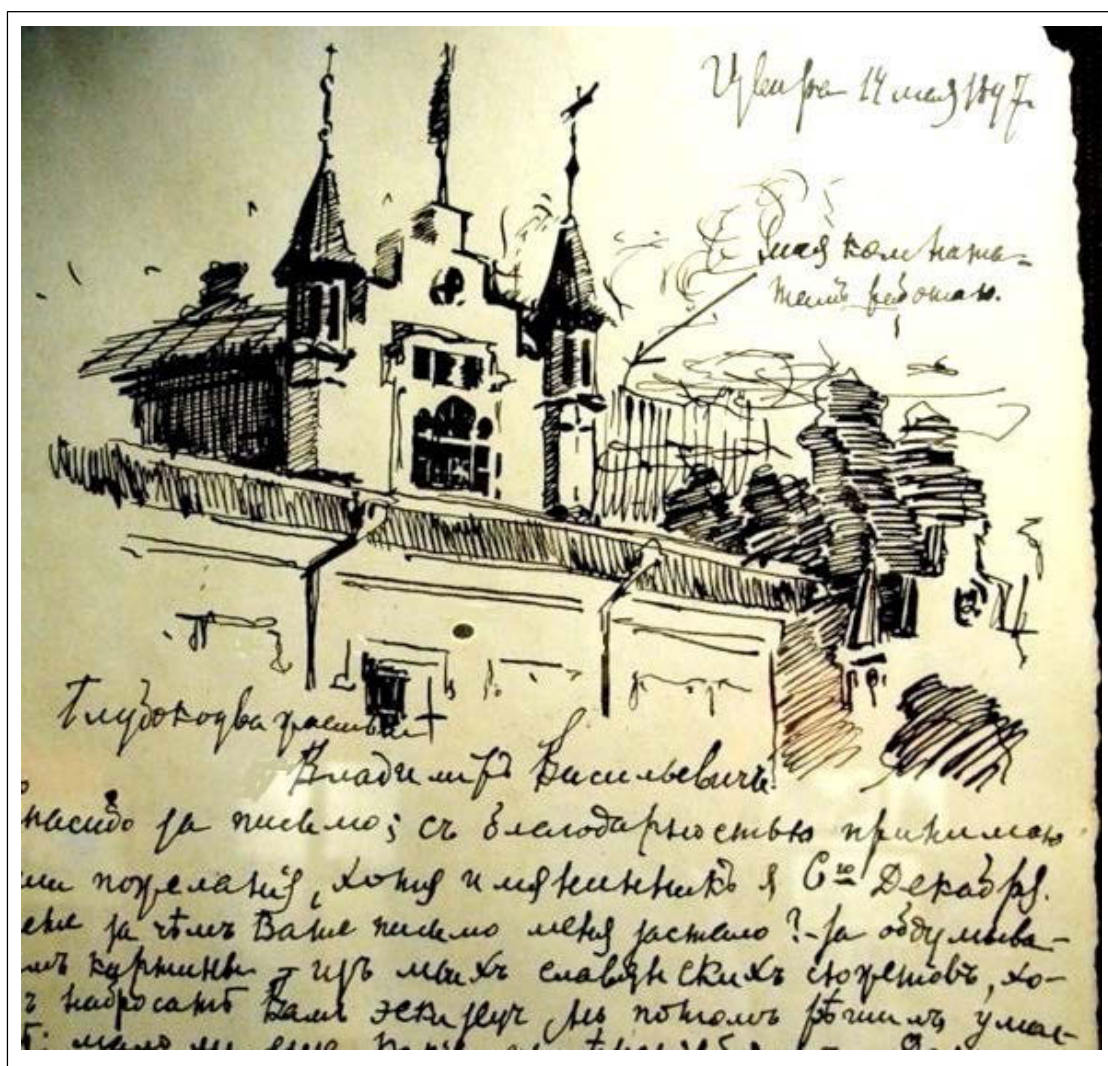 Извара 14 мая 1897
моя комната-
тамъ работаю.
Глубокоуважаемый
Владимиръ Васильевичъ
пасибо за письмо; съ благодарностью принимаю
ши пожеланія, хотя имянинникъ я 6го Декабря.
за чѣмъ Ваше письмо меня застало? - за обдумыва-
мъ картины - изъ моихъ славянскихъ сюжетовъ, хо-
ъ набросать Вамъ но потомъ рѣшилъ